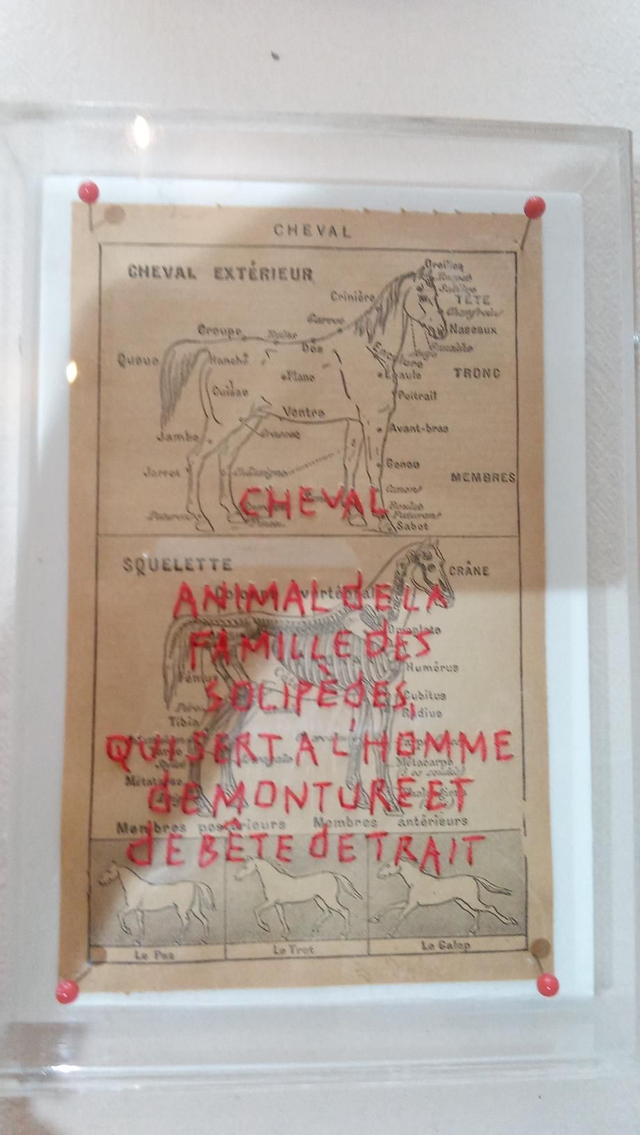 CHEVAL
CHEVAL EXTÉRIEUR
Oreilles
Crinière
TÊTE
Chanfrein
Garrot
Naseaux
Croupe
Dos
Queue
Hanche
Encolure
Flanc
Epaule
TRONC
Cuisse
Poitrail
Ventre
Jambe
Avant-bras
Jarret
Genou
MEMBRES
Châtaigne
Canon
CHEVAL
Boulet
Paturon
Paturon
Sabot
SQUELETTE
CRÂNE
ANIMAL dE LA
FAMILLE dES
Omoplate
Humérus
SOLIPÈdES,
Cubitus
Radius
Tibia
QUI SERT A L'HOMME
Métacarpe
dE MONTURE ET
Membres postérieurs Membres antérieurs
dE BÊTE dE TRAIT
Le Pas Le Trot Le Galop